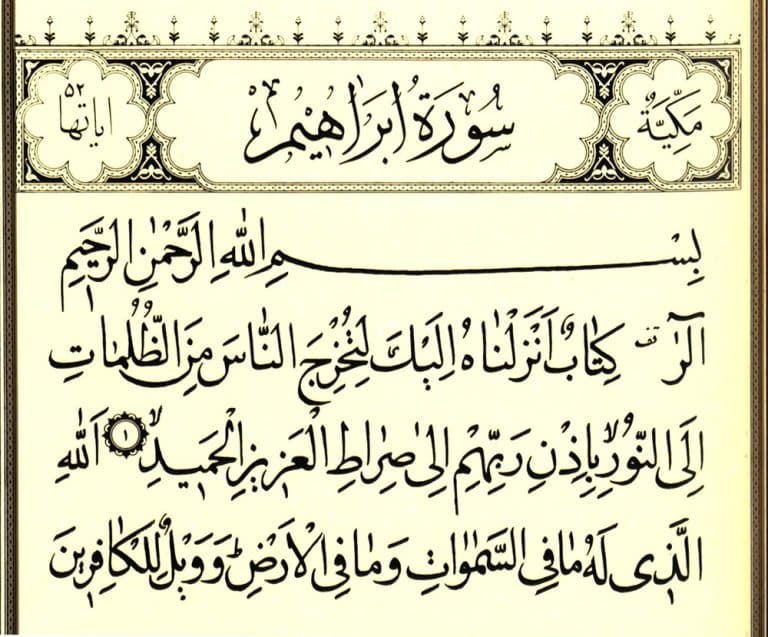 مَكِّيَّةٌ
سُورَةُ اِبْرَاهِيمَ
اٰيَاتُهَا ٥٢
بِسْمِ اللّٰهِ الرَّحْمٰنِ الرَّحِيمِ
الٓرٰ قف كِتَابٌ اَنْزَلْنَاهُ اِلَيْكَ لِتُخْرِجَ النَّاسَ مِنَ الظُّلُمَاتِ
اِلَى النُّورِ بِاِذْنِ رَبِّهِمْ اِلٰى صِرَاطِ الْعَزِيزِ الْحَمِيدِ ۙ ١ اَللّٰهِ
الَّذِى لَهُ مَا فِى السَّمٰوَاتِ وَمَا فِى الْاَرْضِ ط وَوَيْلٌ لِلْكَافِرِينَ